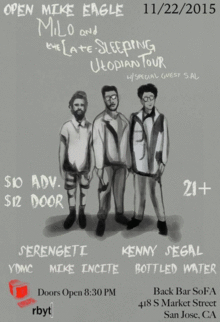 OPEN MIKE EAGLE 11/22/2015
MILO AND
THE LATE-SLEEPING
UTOPIAN TOUR
W/ SPECIAL GUEST
$10 ADV.
$12 DOOR
21+
SERENGETI KENNY SEGAL
YDMC MIKE INCITE BOTTLED WATER
rbyt
Doors Open 8:30 PM
Back Bar SoFA
418 S Market Street
San Jose, CA